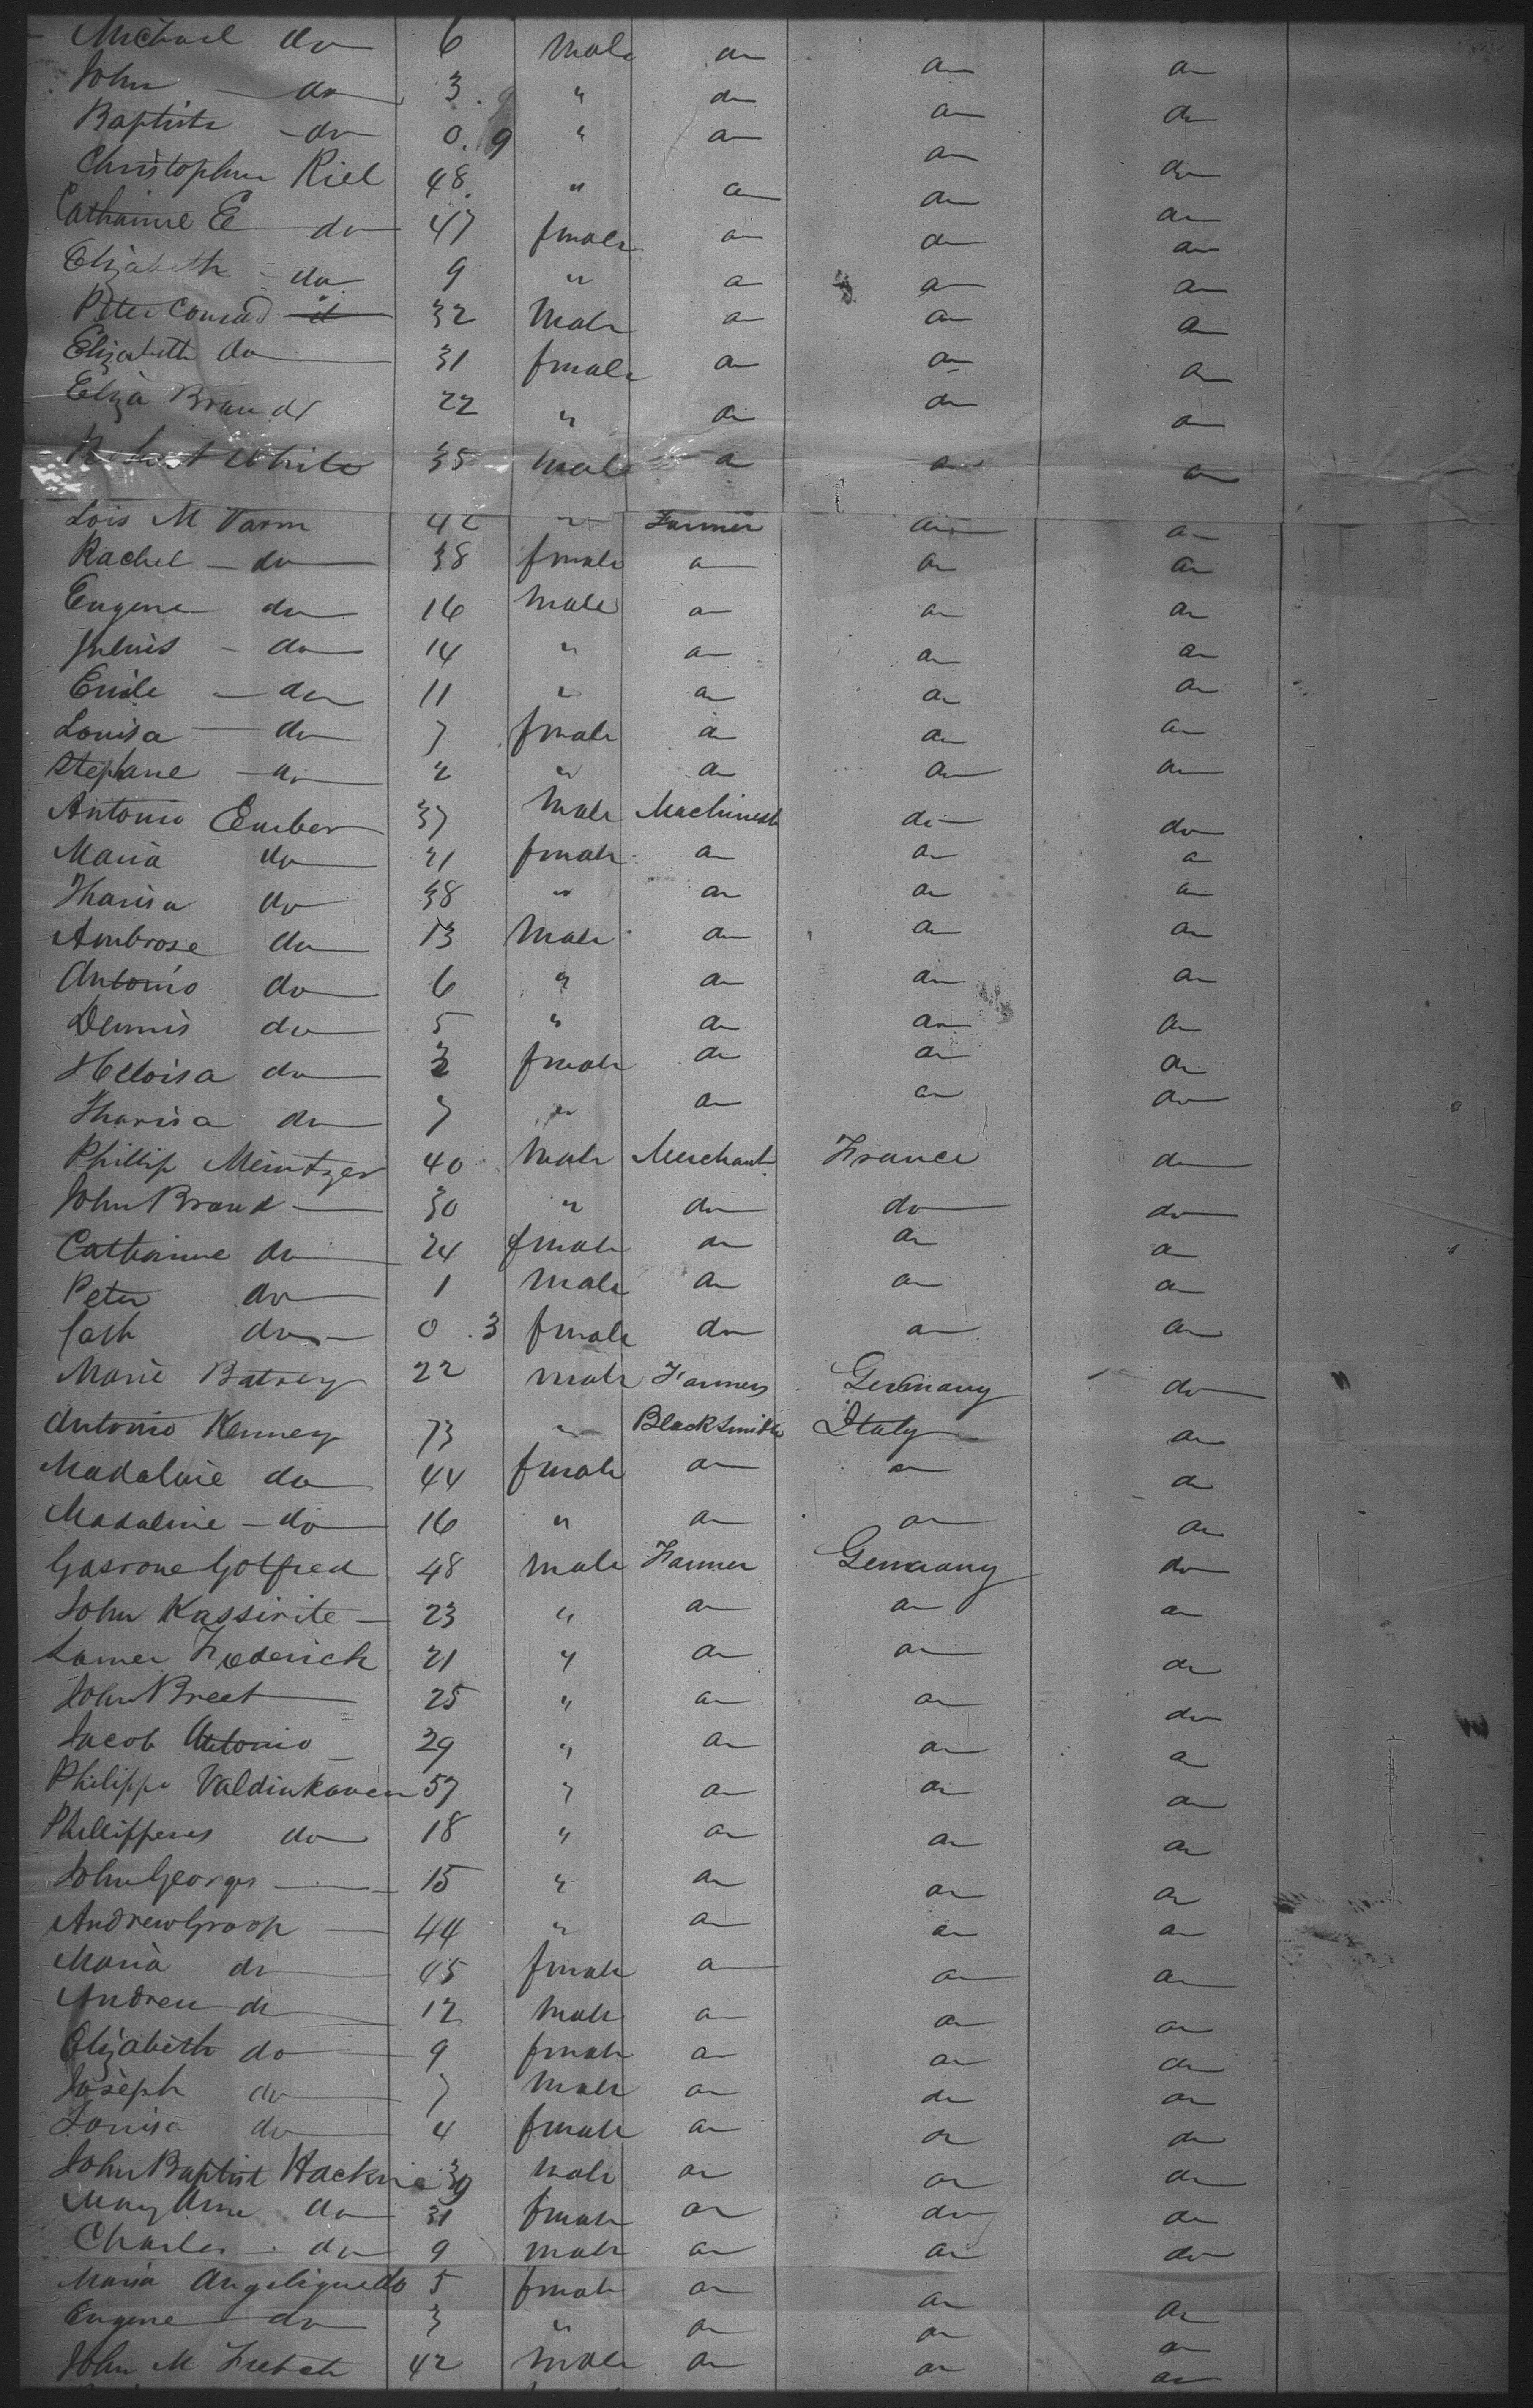 Michael do 6 Male do do do
John do 3 " do do do
Baptiste do 0.9 " do do do
Christopher Riel 48 " do do do
Catharine E do 47 female do do do
Elizabeth do 9 " do do do
Peter Conrad 32 Male do do do
Elizabeth do 31 female do do do
Eliza Brandt 22 " do do do
Robert White 35 male do do do
Lois M Varm 42 " Farmer do do
Rachel do 38 female do do do
Eugene do 16 Male do do do
Julius do 14 " do do do
Emile do 11 " do do do
Louisa do 7 female do do do
Stephane do 2 " do do do
Antonio Cember 37 Male Machinest do do
Maria do 21 female do do do
Tharisa do 38 " do do do
Ambrose do 13 Male do do do
Antonio do 6 " do do do
Dennis do 5 " do do do
Heloisa do 3 female do do do
Tharisa do 7 " do do do
Phillip Meintzer 40 Male Merchant France do
John Brand 30 " do do do
Catharine do 24 female do do do
Peter do 1 Male do do do
Cath do 0.3 female do do do
Marie Batrey 22 male Farmer Germany do
Antonio Kenney 73 " BlackSmith Italy do
Madaline do 44 female do do do
Madaline do 16 " do do do
Gasrone Gotfred 48 male Farmer Germany do
John Kassirite 23 " do do do
Lamer Frederick 21 " do do do
John Breet 25 " do do do
Jacob Antonio 29 " do do do
Philippe Valdinkaven 57 " do do do
Phillipperes do 18 " do do do
John Georges 15 " do do do
Andrew Groop 44 " do do do
Maria do 45 female do do do
Andrew do 12 Male do do do
Elizabeth do 9 female do do do
Joseph do 7 Male do do do
Louisa do 4 female do do do
John Baptist Hacknie 39 Male do do do
Mary Ann do 31 female do do do
Charles do 9 male do do do
Maria Angelique do 5 female do do do
Eugene do 3 " do do do
John M Frebch 42 Male do do do